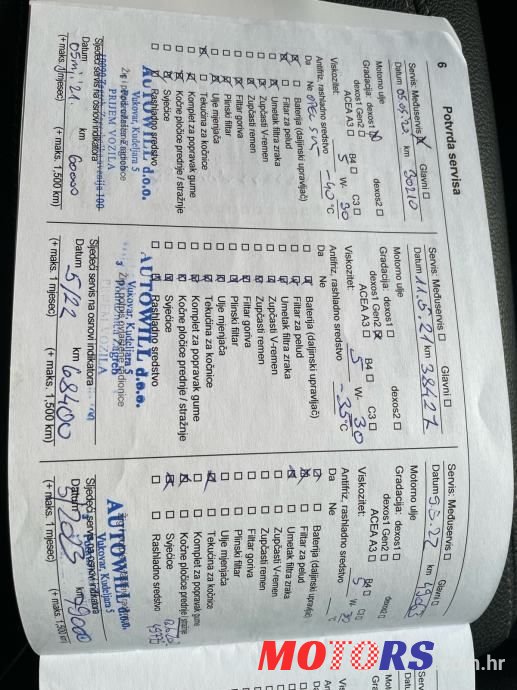 6
Potvrda servisa
Servis: Međuservis
Glavni
Datum 05.05.'20 km 30210
Motorno ulje
Gradacija: dexos1
dexos2
dexos1 Gen2
ACEA A3
B4
C3
Viskozitet: 5 W- 30
Antifriz, rashladno sredstvo -40 °C
Da Ne OPEL SVT
Baterija (daljinski upravljač)
Filtar za pelud
Umetak filtra zraka
Zupčasti V-remen
Zupčasti remen
Filtar goriva
Plinski filtar
Ulje mjenjača
Tekućina za kočnice
Komplet za popravak gume
Kočne pločice prednje / stražnje
Svjećice
Rashladno sredstvo
AUTOWILL d.o.o.
Vukovar, Kudeljara 5
PRIJEM VOZILA
Sljedeći servis na osnovi indikatora
Datum 05mj.'21 km 60000
(+ maks. 1 mjesec) (+ maks. 1,500 km)
Servis: Međuservis
Glavni
Datum 11.5.21 km 38427
Motorno ulje
Gradacija: dexos1
dexos2
dexos1 Gen2
ACEA A3
B4
C3
Viskozitet: 5 W- 30
Antifriz, rashladno sredstvo -35 °C
Da Ne
Baterija (daljinski upravljač)
Filtar za pelud
Umetak filtra zraka
Zupčasti V-remen
Zupčasti remen
Filtar goriva
Plinski filtar
Ulje mjenjača
Tekućina za kočnice
Komplet za popravak gume
Kočne pločice prednje / stražnje
Svjećice
Rashladno sredstvo
AUTOWILL d.o.o.
Vukovar, Kudeljara 5
Zagreb
VOZILA
Sljedeći servis na osnovi indikatora
Datum 5/22 km 68400
(+ maks. 1 mjesec) (+ maks. 1,500 km)
Servis: Međuservis
Glavni
Datum
Motorno ulje
Gradacija: dexos1
dexos1 Gen2
ACEA A3
B4
Viskozitet: 5 W 30
Antifriz, rashladno sredstvo °C
Da Ne
Baterija (daljinski upravljač)
Filtar za pelud
Umetak filtra zraka
Zupčasti V-remen
Zupčasti remen
Filtar goriva
Plinski filtar
Ulje mjenjača
Tekućina za kočnice
Komplet za popravak gume
Kočne pločice prednje / stražnje
Svjećice
Rashladno sredstvo
AUTOWILL d.o.o.
Vukovar, Kudeljara 5
Sljedeći servis na osnovi indikatora
Datum 5/2023 km
(+ maks. 1 mjesec) (+ maks. 1,500 km)
MOTORS.com.hr